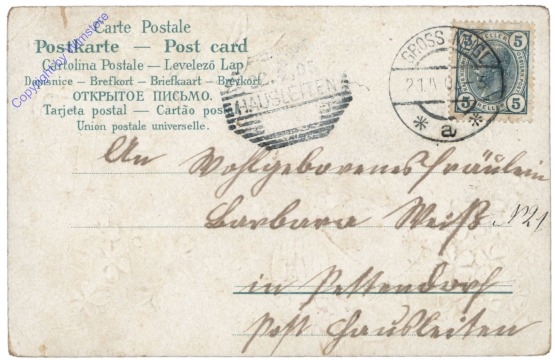 Carte Postale
Postkarte — Post card
Cartolina Postale — Levelező Lap
Dopisnice — Brefkort — Briefkaart — Brevkort
ОТКРЫТОЕ ПИСЬМО.
Tarjeta postal — Cartão postal
Union postale universelle.
Copyright by Filmstere
HAUSLEITEN
GROSS
21
a
5 5
5 5
An
Wohlgeborenes Fräulein
Barbara Weiß
in Pettendorf
Post Hausleiten